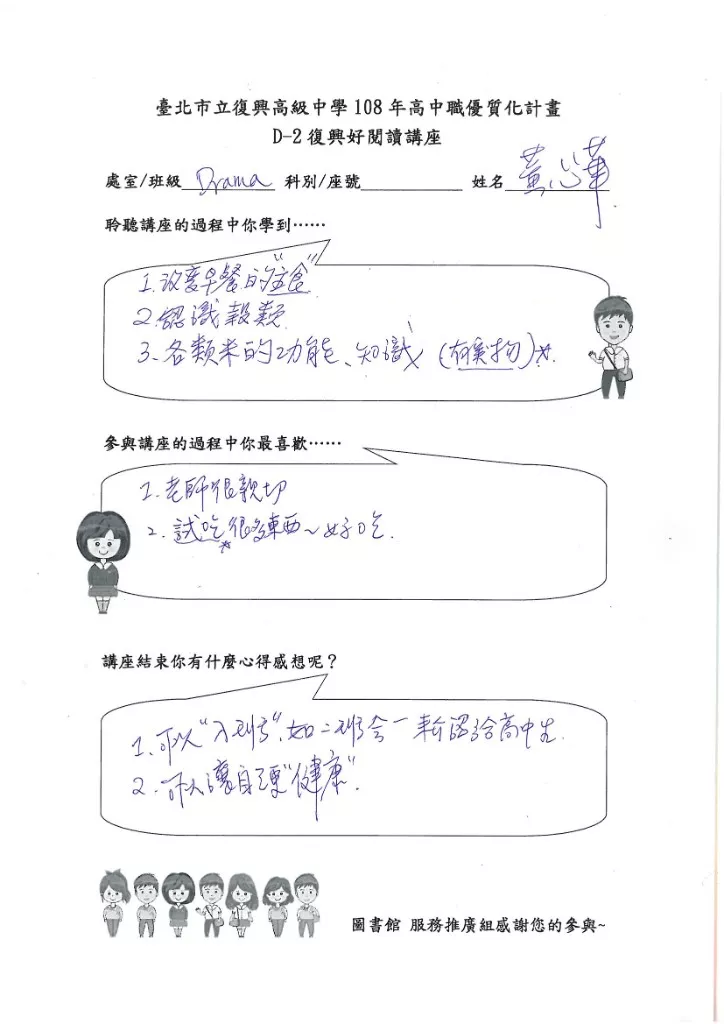 臺北市立復興高級中學 108 年高中職優質化計畫
D-2 復興好閱讀講座
處室/班級 Drama 科別/座號 姓名 黃心華
聆聽講座的過程中你學到……
1. 改變早餐的"主食"
2. 認識穀類
3. 各類米的功能、知識 (有實物)
參與講座的過程中你最喜歡……
1. 老師很親切
2. 試吃很多東西~好吃.
講座結束你有什麼心得感想呢？
1. 可以"入班", 如二班合一 介紹給高中生.
2. 可以讓自己更"健康".
圖書館 服務推廣組感謝您的參與~